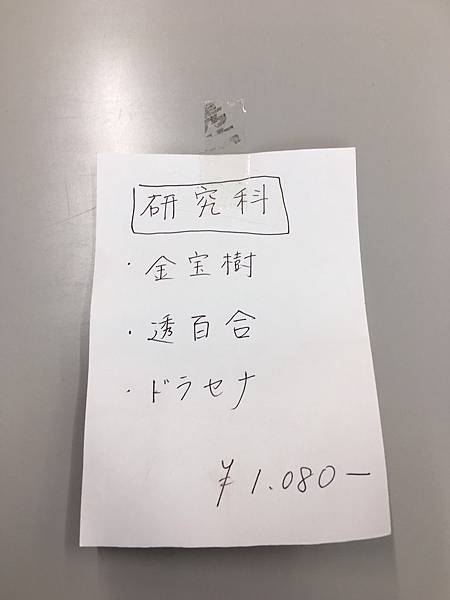 研究科
・金宝樹
・透百合
・ドラセナ
¥1.080−